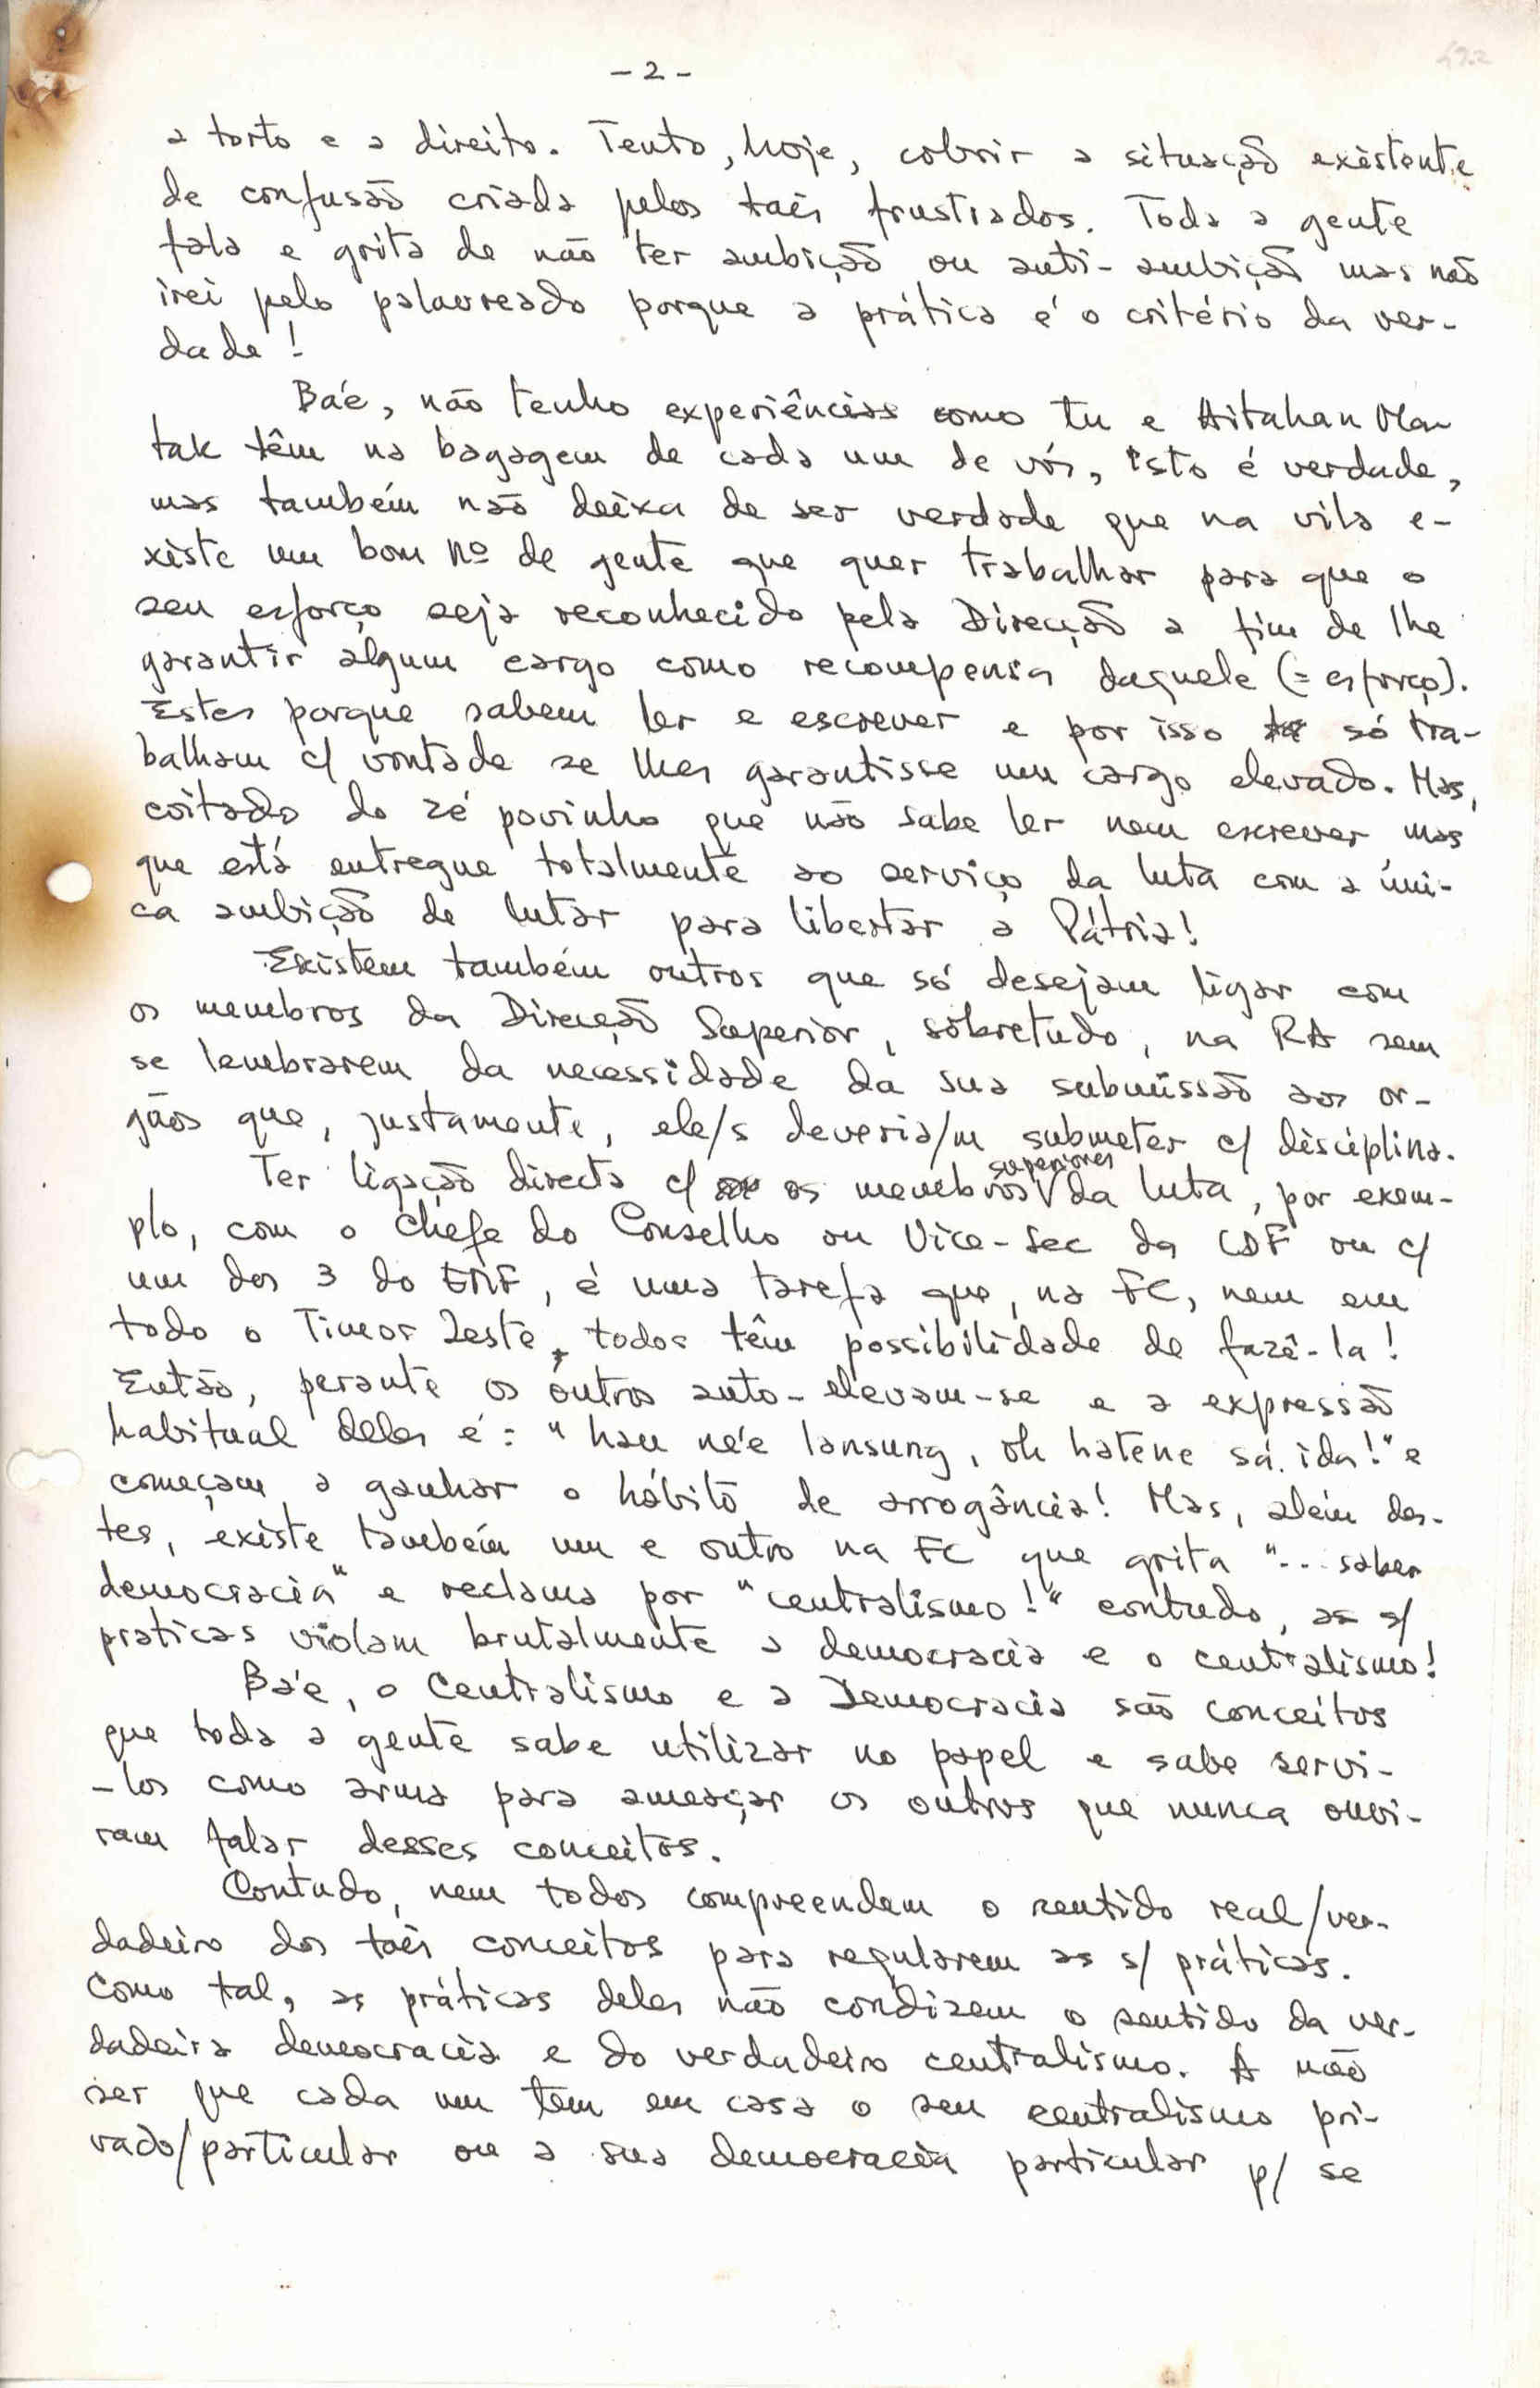 - 2 -
a torto e a direito. Tento, hoje, cobrir a situação existente
de confusão criada pelos tais frustrados. Toda a gente
fala e grita de não ter ambição ou anti-ambição mas não
irei pelo palavreado porque a prática é o critério da ver-
dade!
Bá'e, não tenho experiências como tu e Aitahan Ma-
tak têm na bagagem de cada um de vós, isto é verdade,
mas também não deixa de ser verdade que na vila e-
xiste um bom nº de gente que quer trabalhar para que o
seu esforço seja reconhecido pela Direcção a fim de lhe
garantir algum cargo como recompensa daquele (= esforço).
Estes porque sabem ler e escrever e por isso só tra-
balham c/ vontade se lhes garantisse um cargo elevado. Mas,
coitado do zé povinho que não sabe ler nem escrever mas
que está entregue totalmente ao serviço da luta com a úni-
ca ambição de lutar para libertar a Pátria!
Existem também outros que só desejam ligar com
os membros da Direcção Superior, sobretudo, na RA sem
se lembrarem da necessidade da sua submissão aos or-
gãos que, justamente, ele/s deveria/m submeter c/ disciplina.
Ter ligação directa c/ os membros superiores da luta, por exem-
plo, com o Chefe do Conselho ou Vice-Sec da CDF ou c/
um dos 3 do EMF, é uma tarefa que, na FC, nem em
todo o Timor Leste, todos têm possibilidade de fazê-la!
Então, perante os outros auto-elevam-se e a expressão
habitual deles é: "hau né'e lansung, oh hatene sá ida!" e
começam a ganhar o hábito de arrogância! Mas, além des-
tes, existe também um e outro na FC que grita "... saber
democracia" e reclama por "centralismo!" contudo, as s/
praticas violam brutalmente a democracia e o centralismo!
Bá'e, o Centralismo e a Democracia são conceitos
que toda a gente sabe utilizar no papel e sabe servi-
-los como arma para ameaçar os outros que nunca ouvi-
ram falar desses conceitos.
Contudo, nem todos compreendem o sentido real/ver-
dadeiro dos tais conceitos para regularem as s/ práticas.
Como tal, as práticas deles não condizem o sentido da ver-
dadeira democracia e do verdadeiro centralismo. A não
ser que cada um tem em casa o seu centralismo pri-
vado/particular ou a sua democracia particular p/ se